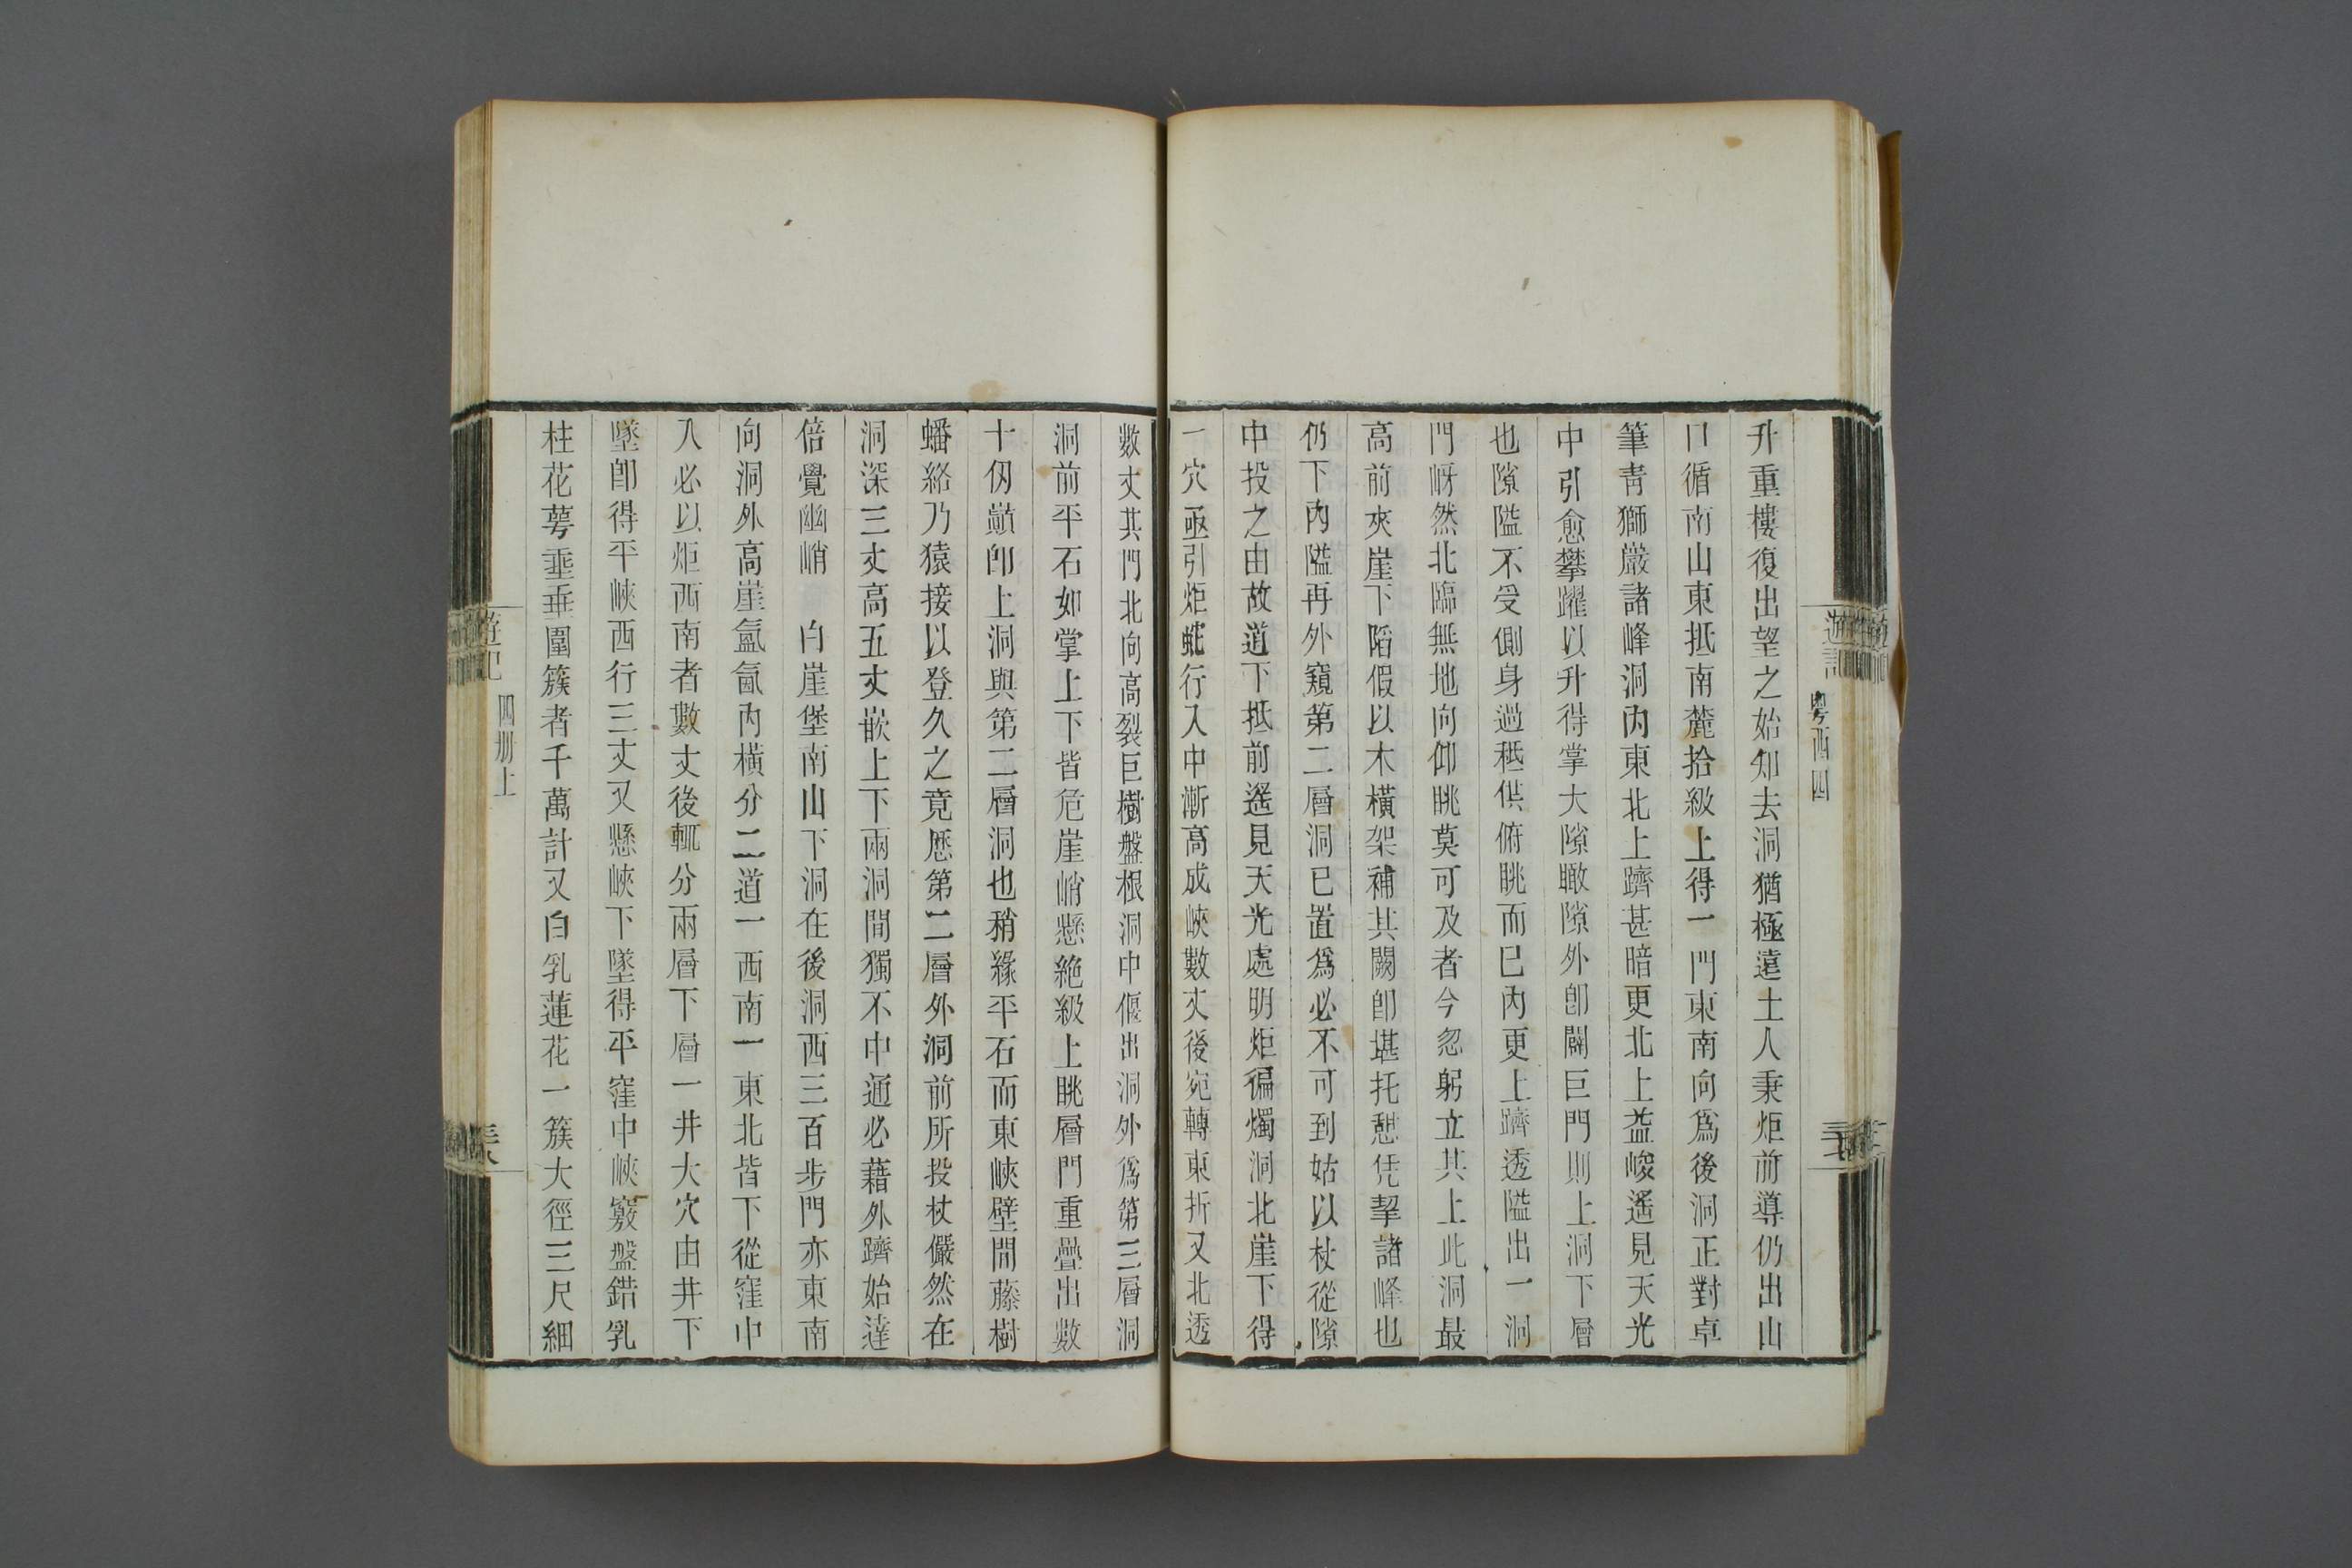 粵西四
升重樓復出望之始知去洞猶極遠土人秉炬前導仍出山
口循南山東抵南麓拾級上得一門東南向爲後洞正對卓
筆靑獅巖諸峰洞內東北上躋甚暗更北上益峻遙見天光
中引愈攀躍以升得掌大隙瞰隙外卽闢巨門則上洞下層
也隙隘不受側身過秪供俯眺而已內更上躋透隘出一洞
門岈然北臨無地向仰眺莫可及者今忽躬立其上此洞最
高前夾崖下䧟假以木橫架補其闕卽堪托憇凭挈諸峰也
仍下內隘再外窺第二層洞已置爲必不可到姑以杖從隙
中投之由故道下抵前遙見天光處明炬徧燭洞北崖下得
一穴亟引炬蛇行入中漸高成峽數丈後宛轉東折又北透
數丈其門北向高裂巨樹盤根洞中偃出洞外爲第三層洞
洞前平石如掌上下皆危崖峭懸絶級上眺層門重疊出數
十仞巔卽上洞與第二層洞也稍緣平石而東峽壁間藤樹
蟠絡乃猿接以登久之竟歷第二層外洞前所投杖儼然在
洞深三丈高五丈嵌上下兩洞間獨不中通必藉外躋始達
倍覺幽峭　白崖堡南山下洞在後洞西三百步門亦東南
向洞外高崖氤氳內橫分二道一西南一東北皆下從窪中
入必以炬西南者數丈後輒分兩層下層一井大穴由井下
墜卽得平峽西行三丈又懸峽下墜得平窪中峽竅盤錯乳
柱花萼垂垂圍簇者千萬計又白乳蓮花一簇大徑三尺細
遊記
四册上